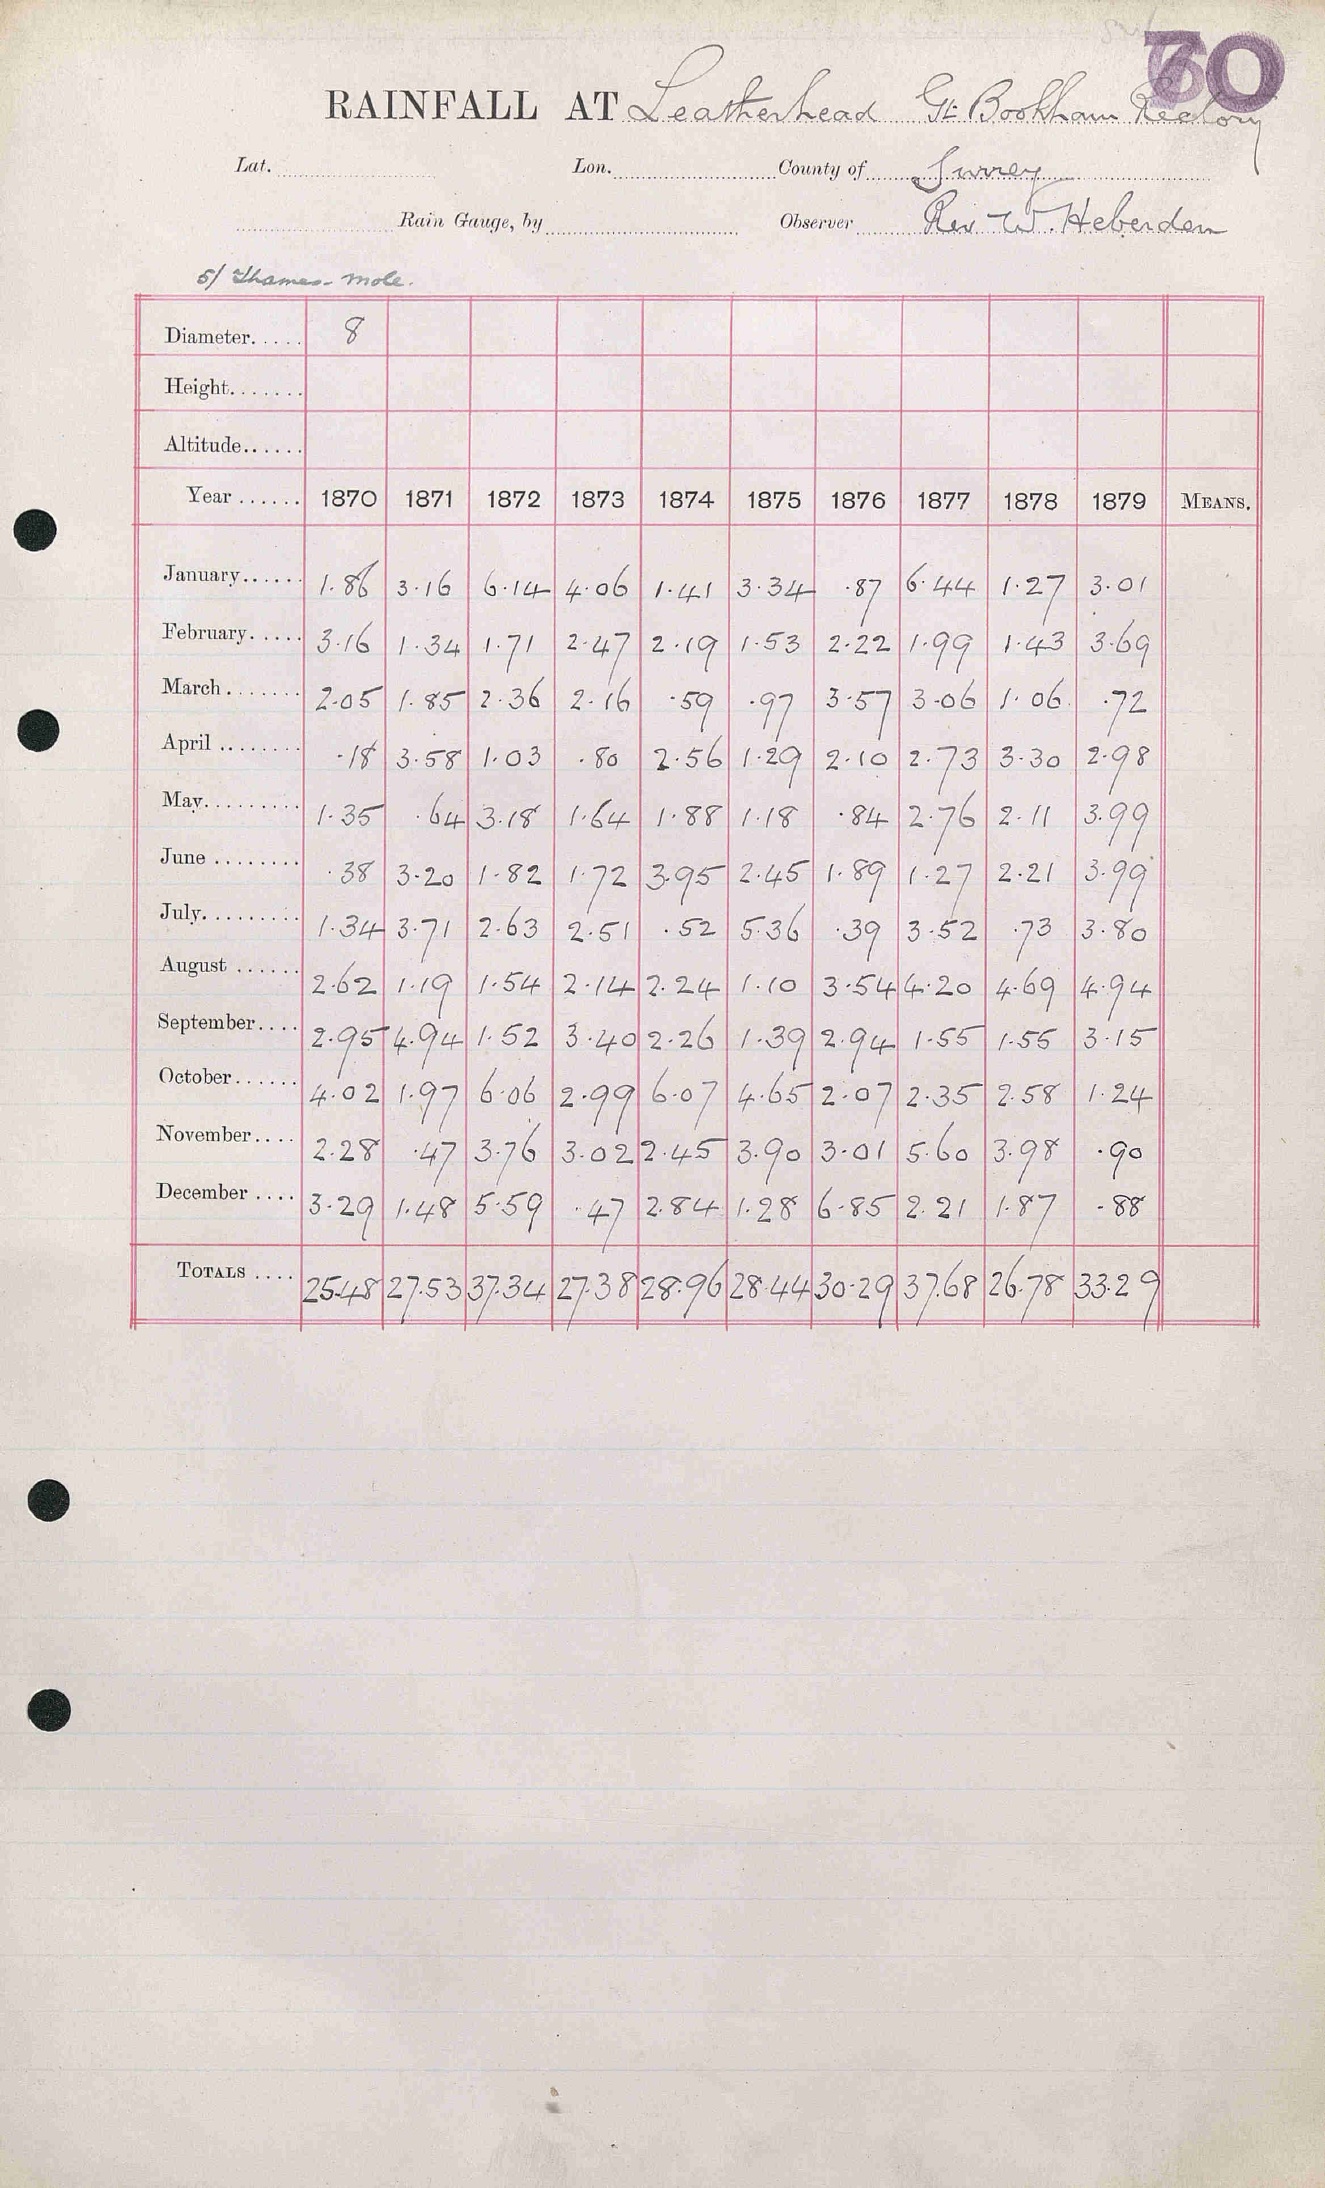 70
RAINFALL AT Leatherhead Gt Bookham Rectory
Lat. Lon. County of Surrey
Rain Gauge, by Observer Rev W. Heberden
5/ Thames - Mole.
Diameter..... 8
Height.......
Altitude......
Year ...... 1870 1871 1872 1873 1874 1875 1876 1877 1878 1879 MEANS.
January...... 1.86 3.16 6.14 4.06 1.41 3.34 .87 6.44 1.27 3.01
February..... 3.16 1.34 1.71 2.47 2.19 1.53 2.22 1.99 1.43 3.69
March....... 2.05 1.85 2.36 2.16 .59 .97 3.57 3.06 1.06 .72
April ........ .18 3.58 1.03 .80 2.56 1.29 2.10 2.73 3.30 2.98
May......... 1.35 .64 3.18 1.64 1.88 1.18 .84 2.76 2.11 3.99
June ........ .38 3.20 1.82 1.72 3.95 2.45 1.89 1.27 2.21 3.99
July......... 1.34 3.71 2.63 2.51 .52 5.36 .39 3.52 .73 3.80
August ...... 2.62 1.19 1.54 2.14 2.24 1.10 3.54 4.20 4.69 4.94
September.... 2.95 4.94 1.52 3.40 2.26 1.39 2.94 1.55 1.55 3.15
October...... 4.02 1.97 6.06 2.99 6.07 4.65 2.07 2.35 2.58 1.24
November.... 2.28 .47 3.76 3.02 2.45 3.90 3.01 5.60 3.98 .90
December .... 3.29 1.48 5.59 .47 2.84 1.28 6.85 2.21 1.87 .88
TOTALS .... 25.48 27.53 37.34 27.38 28.96 28.44 30.29 37.68 26.78 33.29